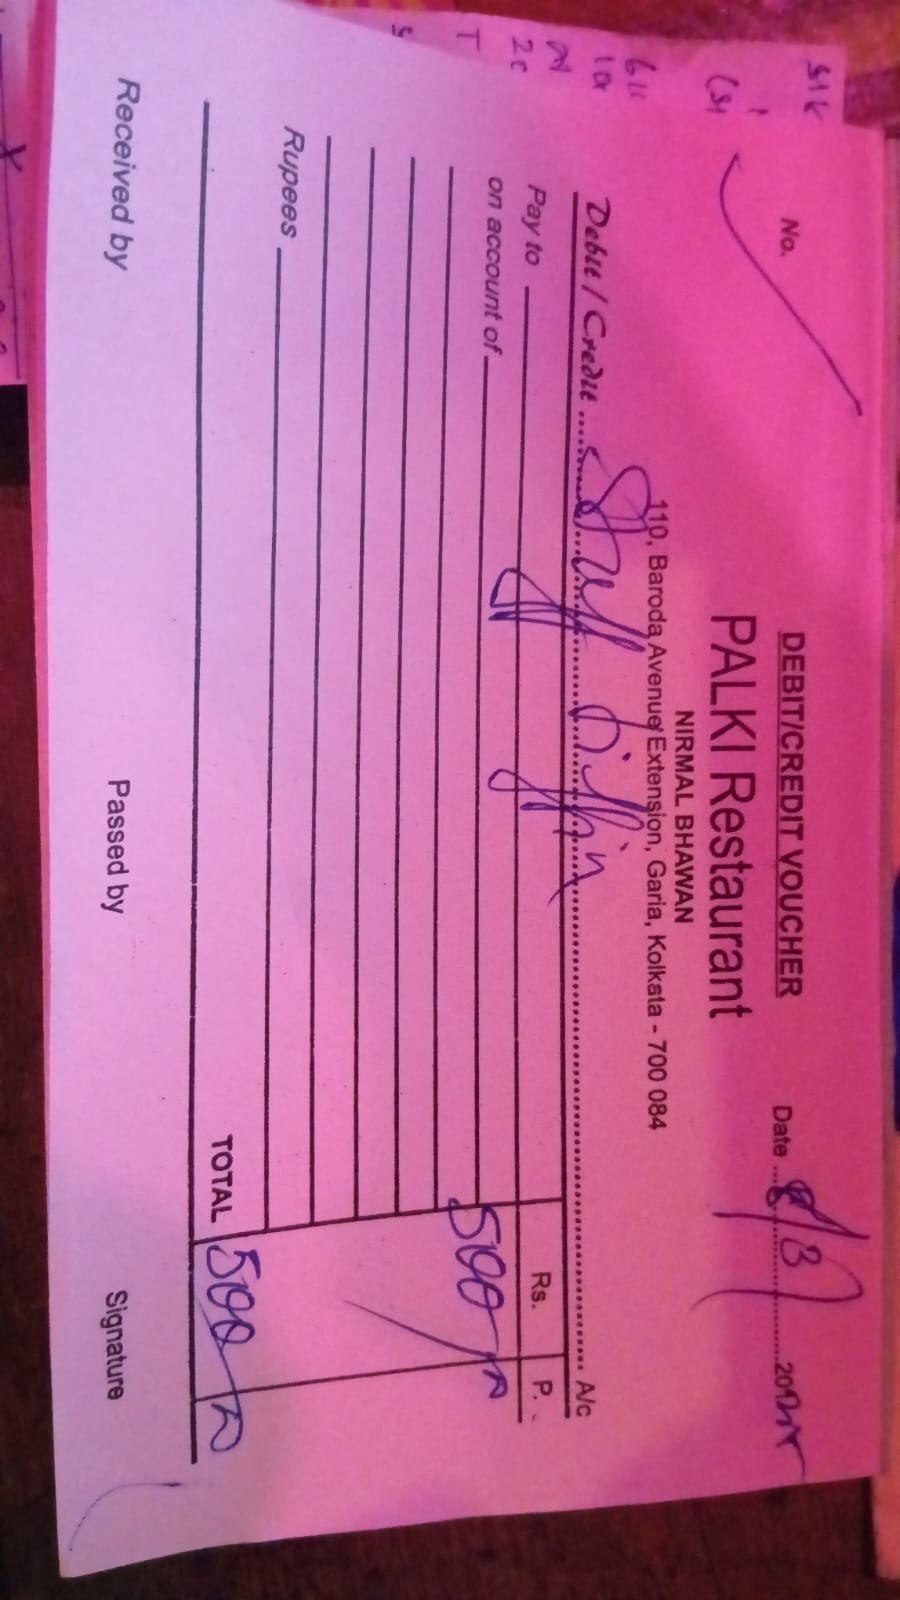 DEBIT/CREDIT VOUCHER
No.
Date 8/3 20
PALKI Restaurant
NIRMAL BHAWAN
110, Baroda Avenue Extension, Garia, Kolkata - 700 084
Debit / Credit Staff tiffin A/c
Pay to
Rs. P.
on account of
500/-
Rupees
TOTAL 500/-
Received by
Passed by
Signature